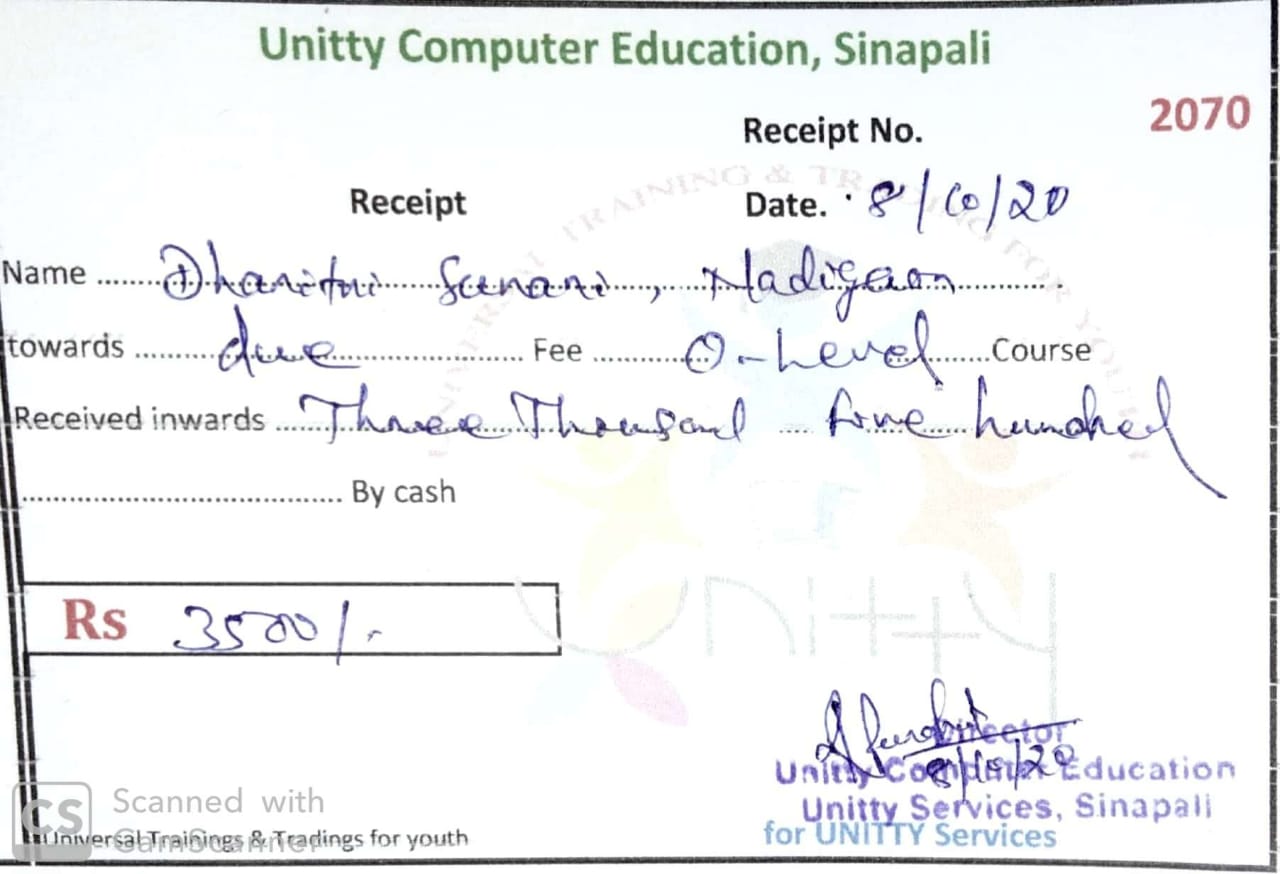 Unitty Computer Education, Sinapali
2070
Receipt No.
Receipt Date. 8/10/20
Name ........ Dharitri Sunani, Nadigaon ............
towards ......... due ..................... Fee ............ O-Level ........ Course
Received inwards ..... Three Thousand .... five hundred
........................................ By cash
Rs 3500/-
8/10/20
Director
Unitty Computer Education
Unitty Services, Sinapali
for UNITTY Services
Universal Trainings & Tradings for youth
CS Scanned with
CamScanner
UNIVERSAL TRAINING & TRADING FOR YOUTH
UNitty